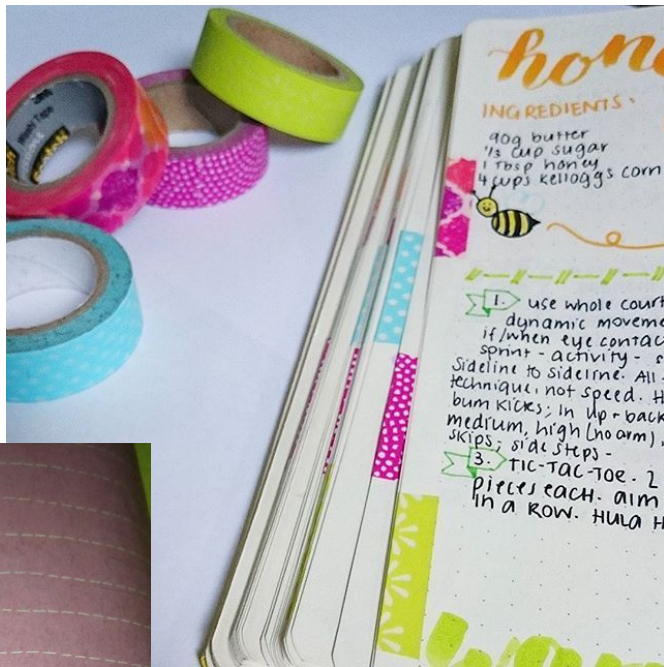 Washi Tape
Scotch
hon
INGREDIENTS.
90g butter
1/3 cup sugar
1 Tbsp honey
4 cups kelloggs corn
1. use whole court
dynamic moveme
if/when eye contac
sprint - activity - s
Sideline to sideline. All
technique, not speed. H
bum kicks; in up + back
medium, high (no arm),
skips; side steps -
3. TIC-TAC-TOE. 2
pieces each. aim
in a row. Hula H